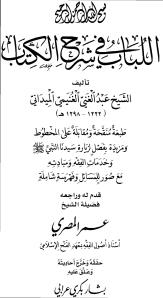 بسم الله الرحمن الرحيم
اللباب في شرح الكتاب
تأليف
الشيخ عبد الغني الغنيمي الميداني
(١٢٢٢ - ١٢٩٨ هـ)
طبعة منقحة ومقابلة على المخطوط
ومزيدة بفصل زيارة سيدنا النبي ﷺ
وخدمات الفقه ومباحثه
مع صور للمسائل وفهرسة شاملة
قدم له وراجعه
فضيلة الشيخ
عمر المصري
أستاذ أصول الفقه بمعهد الفتح الإسلامي
حققه وخرج أحاديثه
وعلق عليه
بشار بكري عرابي